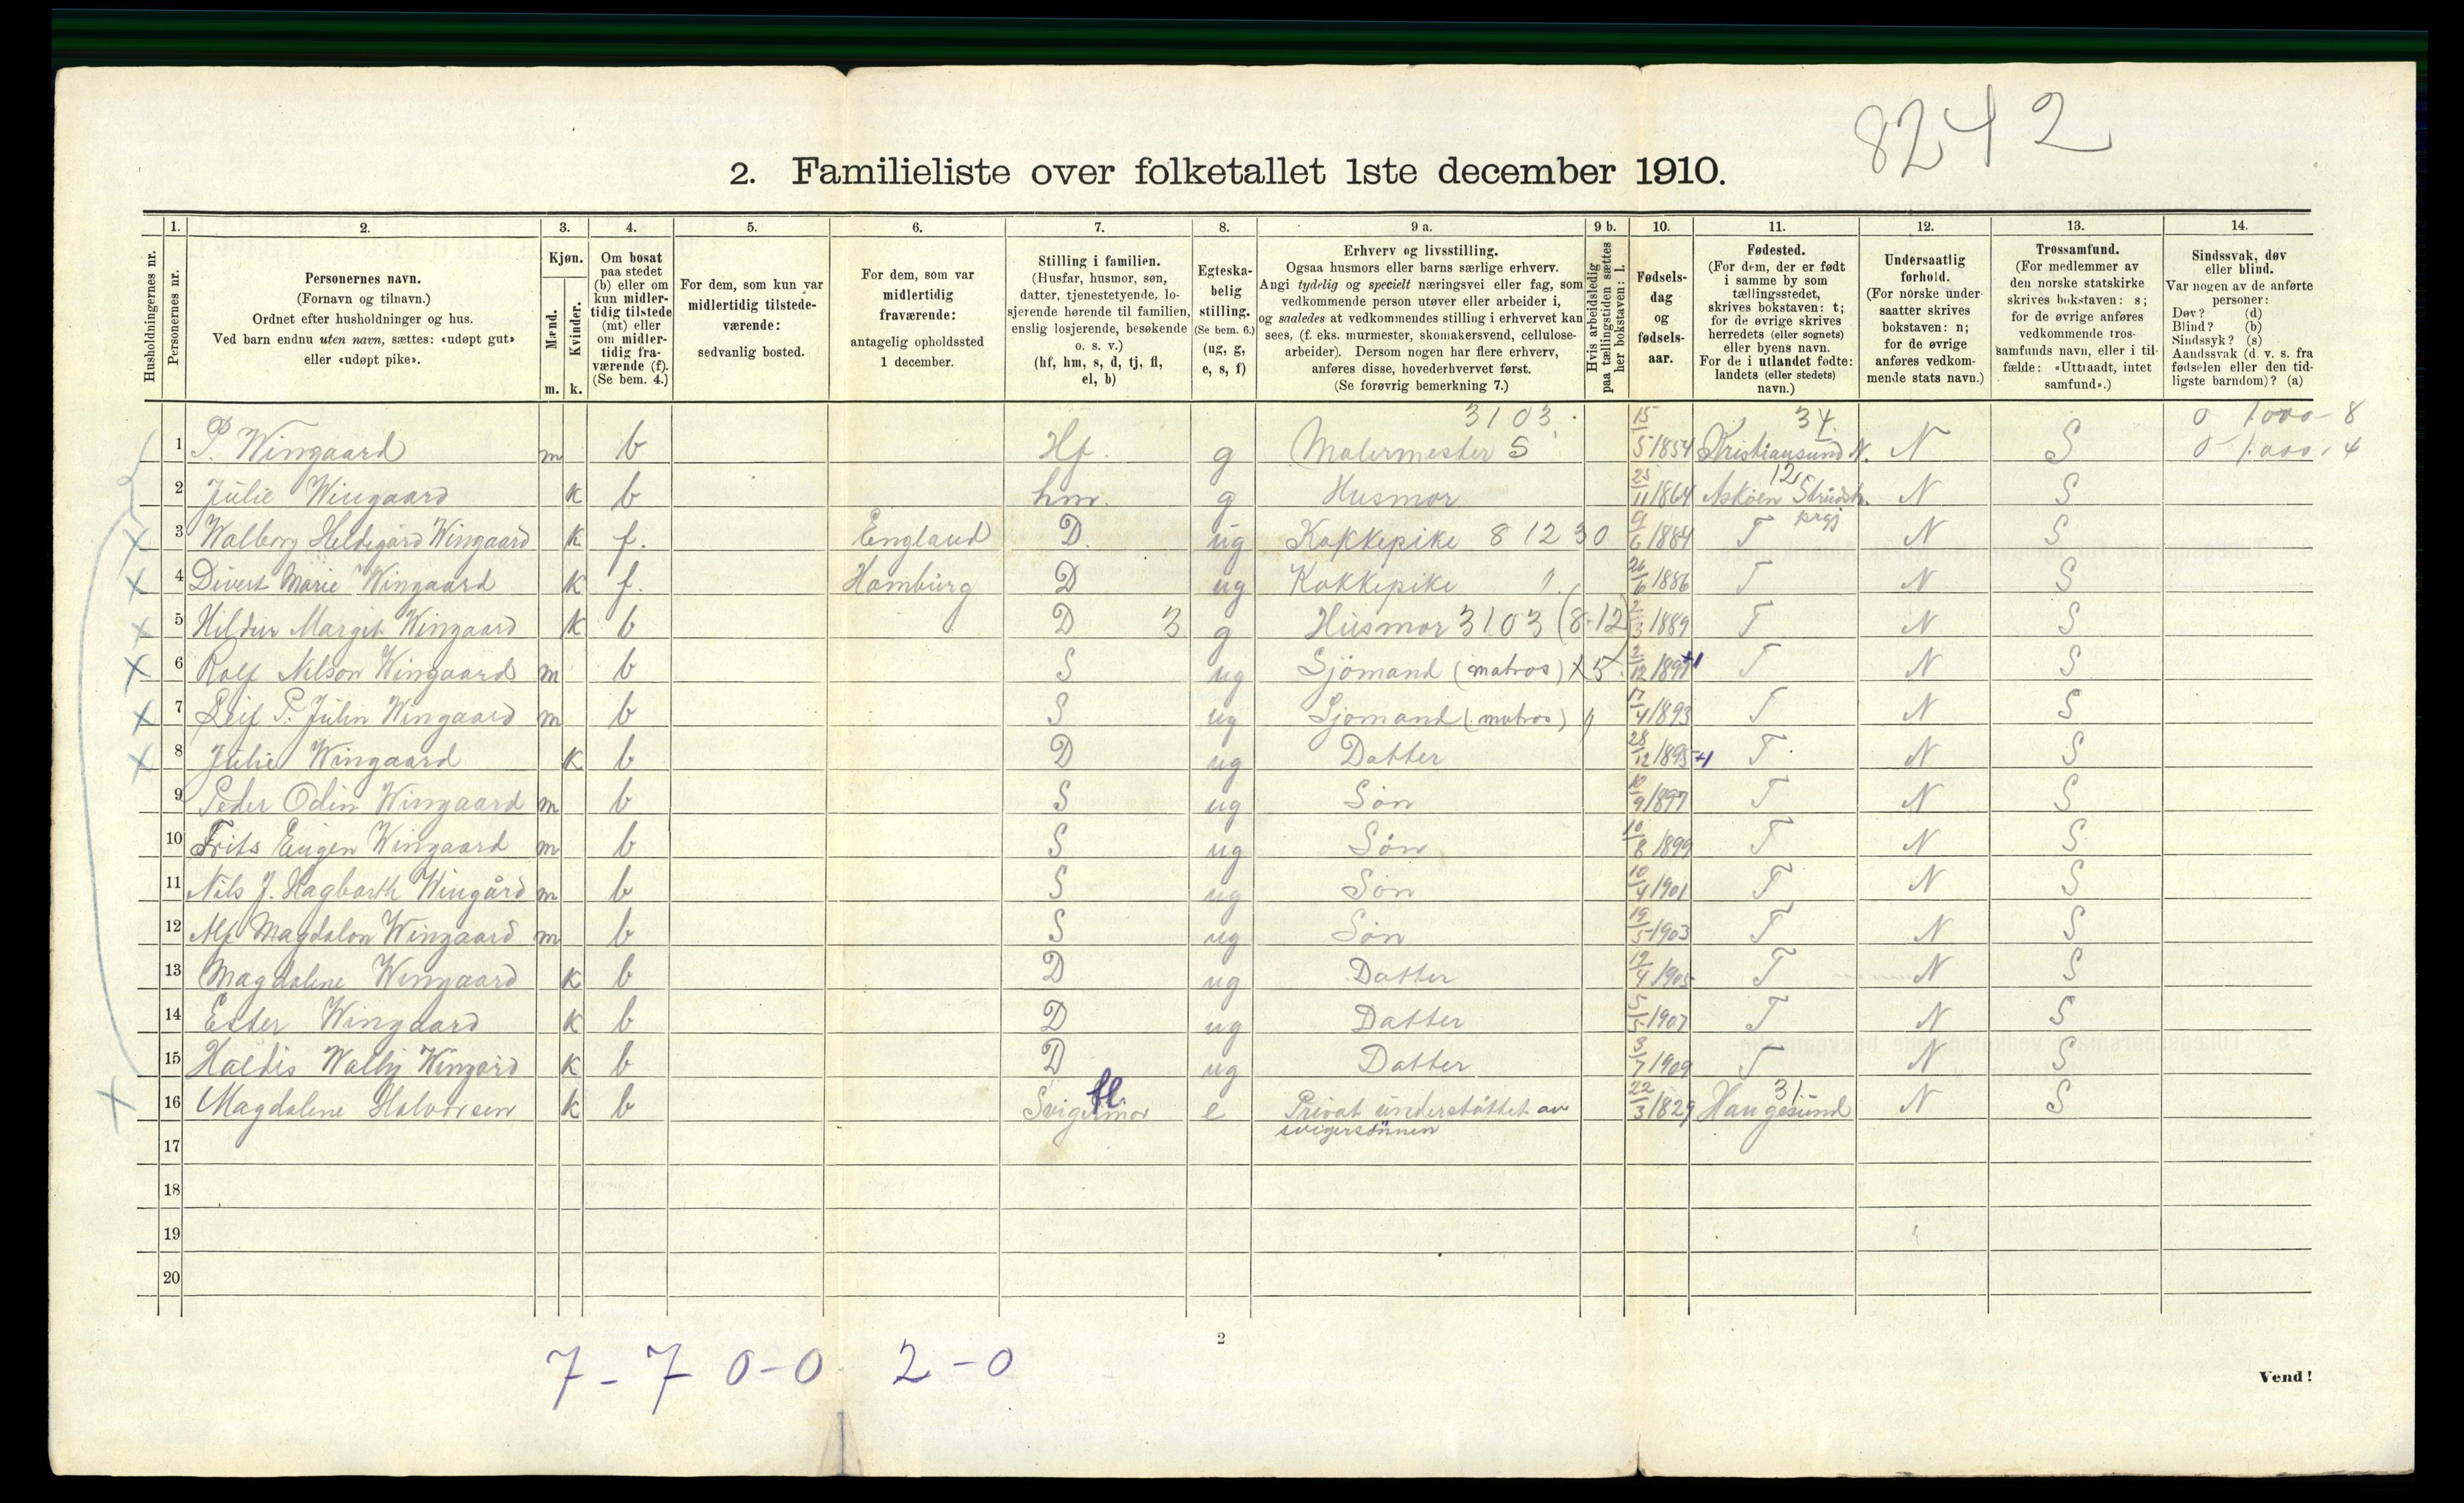 8242
2. Familieliste over folketallet 1ste december 1910.
Husholdningernes nr.
1. Personernes nr.
2. Personernes navn.
(Fornavn og tilnavn.)
Ordnet efter husholdninger og hus.
Ved barn endnu uten navn, sættes: «udøpt gut»
eller «udøpt pike».
3. Kjøn.
Mænd. m.
Kvinder. k.
4. Om bosat
paa stedet
(b) eller om
kun midler-
tidig tilstede
(mt) eller
om midler-
tidig fra-
værende (f).
(Se bem. 4.)
5. For dem, som kun var
midlertidig tilstede-
værende:
sedvanlig bosted.
6. For dem, som var
midlertidig
fraværende:
antagelig opholdssted
1 december.
7. Stilling i familien.
(Husfar, husmor, søn,
datter, tjenestetyende, lo-
sjerende hørende til familien,
enslig losjerende, besøkende
o. s. v.)
(hf, hm, s, d, tj, fl,
el, b)
8. Egteska-
belig
stilling.
(Se bem. 6.)
(ug, g,
e, s, f)
9 a. Erhverv og livsstilling.
Ogsaa husmors eller barns særlige erhverv.
Angi tydelig og specielt næringsvei eller fag, som
vedkommende person utøver eller arbeider i,
og saaledes at vedkommendes stilling i erhvervet kan
sees, (f. eks. murmester, skomakersvend, cellulose-
arbeider). Dersom nogen har flere erhverv,
anføres disse, hovederhvervet først.
(Se forøvrig bemerkning 7.)
9 b. Hvis arbeidsledig
paa tællingstiden sættes
her bokstaven: l.
10. Fødsels-
dag
og
fødsels-
aar.
11. Fødested.
(For dem, der er født
i samme by som
tællingsstedet,
skrives bokstaven: t;
for de øvrige skrives
herredets (eller sognets)
eller byens navn.
For de i utlandet fødte:
landets (eller stedets)
navn.)
12. Undersaatlig
forhold.
(For norske under-
saatter skrives
bokstaven: n;
for de øvrige
anføres vedkom-
mende stats navn.)
13. Trossamfund.
(For medlemmer av
den norske statskirke
skrives bokstaven: s;
for de øvrige anføres
vedkommende tros-
samfunds navn, eller i til-
fælde: «Uttraadt, intet
samfund».)
14. Sindssvak, døv
eller blind.
Var nogen av de anførte
personer:
Døv? (d)
Blind? (b)
Sindssyk? (s)
Aandssvak (d. v. s. fra
fødselen eller den tid-
ligste barndom)? (a)
3103. 34. 0 1000-8
1 P. Wingaard m b Hf. g Malermester S 15/5 1854 Kristiansund N. N S 0 1.000.4
2 Julie Wingaard k b hm. g Husmor 25/11 1864 12 Askøen N S
3 Walborg Heldegård Wingaard k f. England D. ug Kokkepike 81230 9/6 1884 T N S
4 Divert Marie Wingaard k f. Hamburg D ug Kokkepike " 26/6 1886 T N S
5 Hildur Margit Wingaard k b D 3 g Husmor 3103 (8-12) 2/3 1889 T N S
6 Rolf Nelson Wingaard m b S ug Sjömand (matros) x5 2/12 1891 +1 T N S
7 Leif P. Julin Wingaard m b S ug Sjömand (matros) " 17/4 1893 T N S
8 Julie Wingaard k b D ug Datter 28/12 1895 +1 T N S
9 Peder Odin Wingaard m b S ug Søn 10/9 1897 T N S
10 Frits Eugen Wingaard m b S ug Søn 10/8 1899 T N S
11 Nils J. Hagbarth Wingård m b S ug Søn 10/4 1901 T N S
12 Alf Magdalon Wingaard m b S ug Søn 19/5 1903 T N S
13 Magdalene Wingaard k b D ug Datter 12/4 1905 T N S
14 Ester Wingaard k b D ug Datter 5/5 1907 T N S
15 Haldis Walby Wingård k b D ug Datter 3/7 1909 T N S
16 Magdalene Halvorsen k b Svigermor fl. e Privat understøttet av 22/3 1829 31 Haugesund N S
svigersønnen
17
18
19
20
2
7-7 0-0 2-0
Vend!